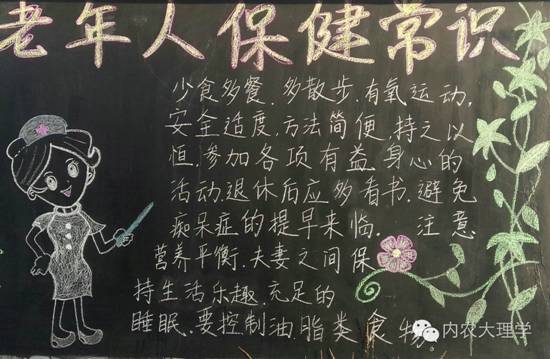 老年人保健常识
少食多餐.多散步.有氧运动,
安全适度,方法简便,持之以
恒.参加各项有益身心的
活动.退休后应多看书.避免
痴呆症的提早来临. 注意
营养平衡.夫妻之间保
持生活乐趣.充足的
睡眠.要控制油.脂类食物
内农大理学